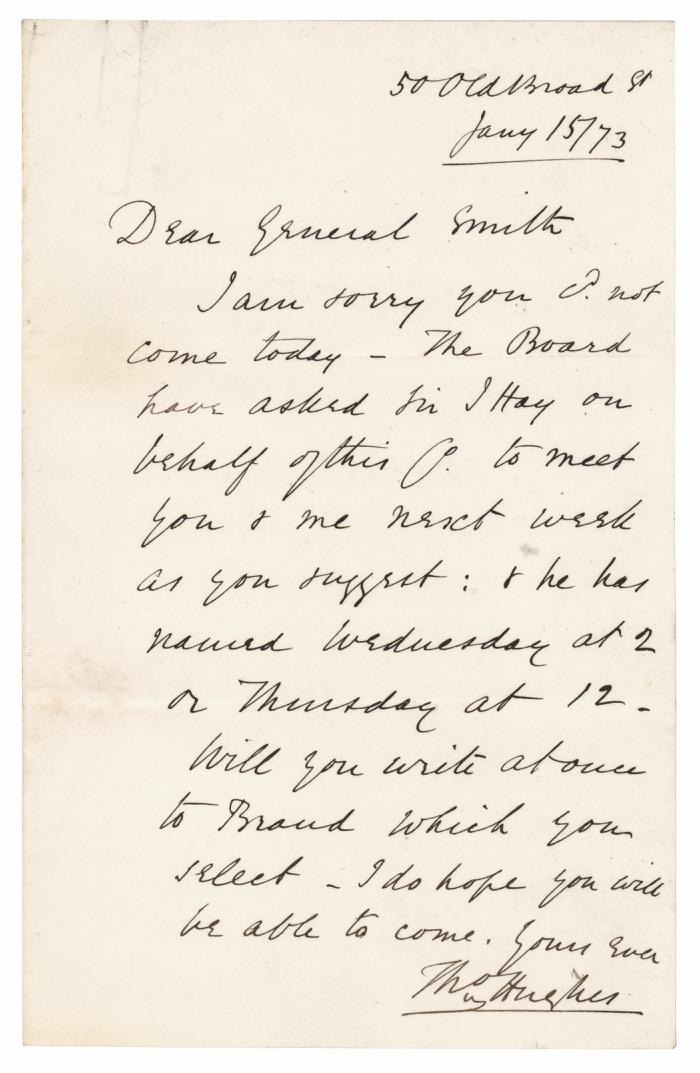 50 Old Broad St
Jany 15/73
Dear General Smith
I am sorry you cd. not
come today - The Board
have asked Sir J Hay on
behalf of this Co. to meet
you & me next week
as you suggest: & he has
named Wednesday at 2
or Thursday at 12 -
Will you write at once
to Brand which you
select - I do hope you will
be able to come. Yours ever
Thos Hughes